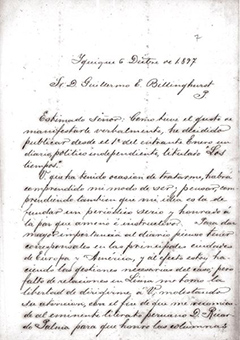 2
Iquique 6 Dictre de 1897
Sr. D. Guillermo E. Billinghurst
P
Estimado Señor: Como tuve el gusto de
manifestarle verbalmente, he decidido
publicar desde el 1º del entrante Enero un
diario político independiente, titulado "Los
tiempos".
V. que ha tenido ocasion de tratarme, habrá
comprendido mi modo de ser y pensar, com
prendiendo tambien que mi idea es la de
fundar un periódico serio y honrado á
la par que ameno é instructivo. Para dar
mayor importancia al diario pienso tener
corresponsales en las principales ciudades
de Europa y América, y al efecto estoy ha
ciendo las gestiones necesarias del caso, pero
falto de relaciones en Lima me tomo la
libertad de dirigirme á V. molestando
su atencion, con el fin de que me recomien
de al eminente literato peruano D. Ricar
do Palma para que honre las columnas